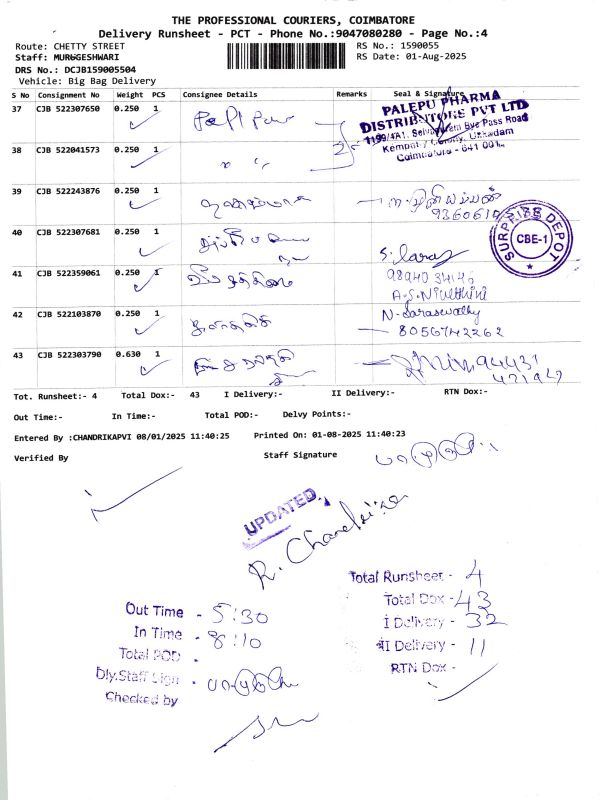 THE PROFESSIONAL COURIERS, COIMBATORE
Delivery Runsheet - PCT - Phone No.:9047080280 - Page No.:4
Route: CHETTY STREET
RS No.: 1590055
Staff: MURUGESHWARI
RS Date: 01-Aug-2025
DRS No.: DCJB159005504
Vehicle: Big Bag Delivery
S No Consignment No Weight PCS Consignee Details Remarks Seal & Signature
37 CJB 522307650 0.250 1
PALEPU PHARMA
DISTRIBUTORS PVT LTD
1199/4A1, Selvapuram Bye Pass Road
Kempatty Colony, Ukkadam
Coimbatore - 641 001.
38 CJB 522041573 0.250 1
39 CJB 522243876 0.250 1
40 CJB 522307681 0.250 1
SURPRISE DEPOT
CBE-1
S. Saras
41 CJB 522359061 0.250 1
98940 34146
A.S. Nivethini
42 CJB 522103870 0.250 1
N. Saraswathy
8056742262
43 CJB 522303790 0.630 1
94431
Tot. Runsheet:- 4 Total Dox:- 43 I Delivery:- II Delivery:- RTN Dox:-
Out Time:- In Time:- Total POD:- Delvy Points:-
Entered By :CHANDRIKAPVI 08/01/2025 11:40:25 Printed On: 01-08-2025 11:40:23
Verified By Staff Signature
UPDATED
R. Chandrika
Total Runsheet - 4
Total Dox - 43
I Delivery - 32
II Delivery - 11
RTN Dox -
Out Time - 5:30
In Time - 8:10
Total POD -
Dly.Staff Sign -
Checked by